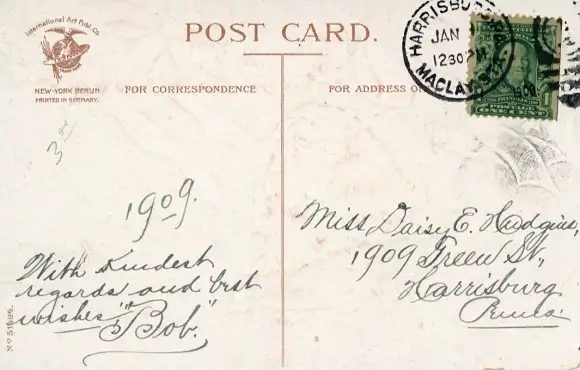 International Art Publ. Co.
NEW-YORK BERLIN
PRINTED IN GERMANY.
POST CARD.
FOR CORRESPONDENCE
FOR ADDRESS ON
HARRISBURG
JAN
1230 PM
MACLAY STA.
ONE CENT
1909.
With kindest
regards and best
wishes "Bob."
Miss Daisy E. Hudgins,
1909 Green St.,
Harrisburg
Penna.